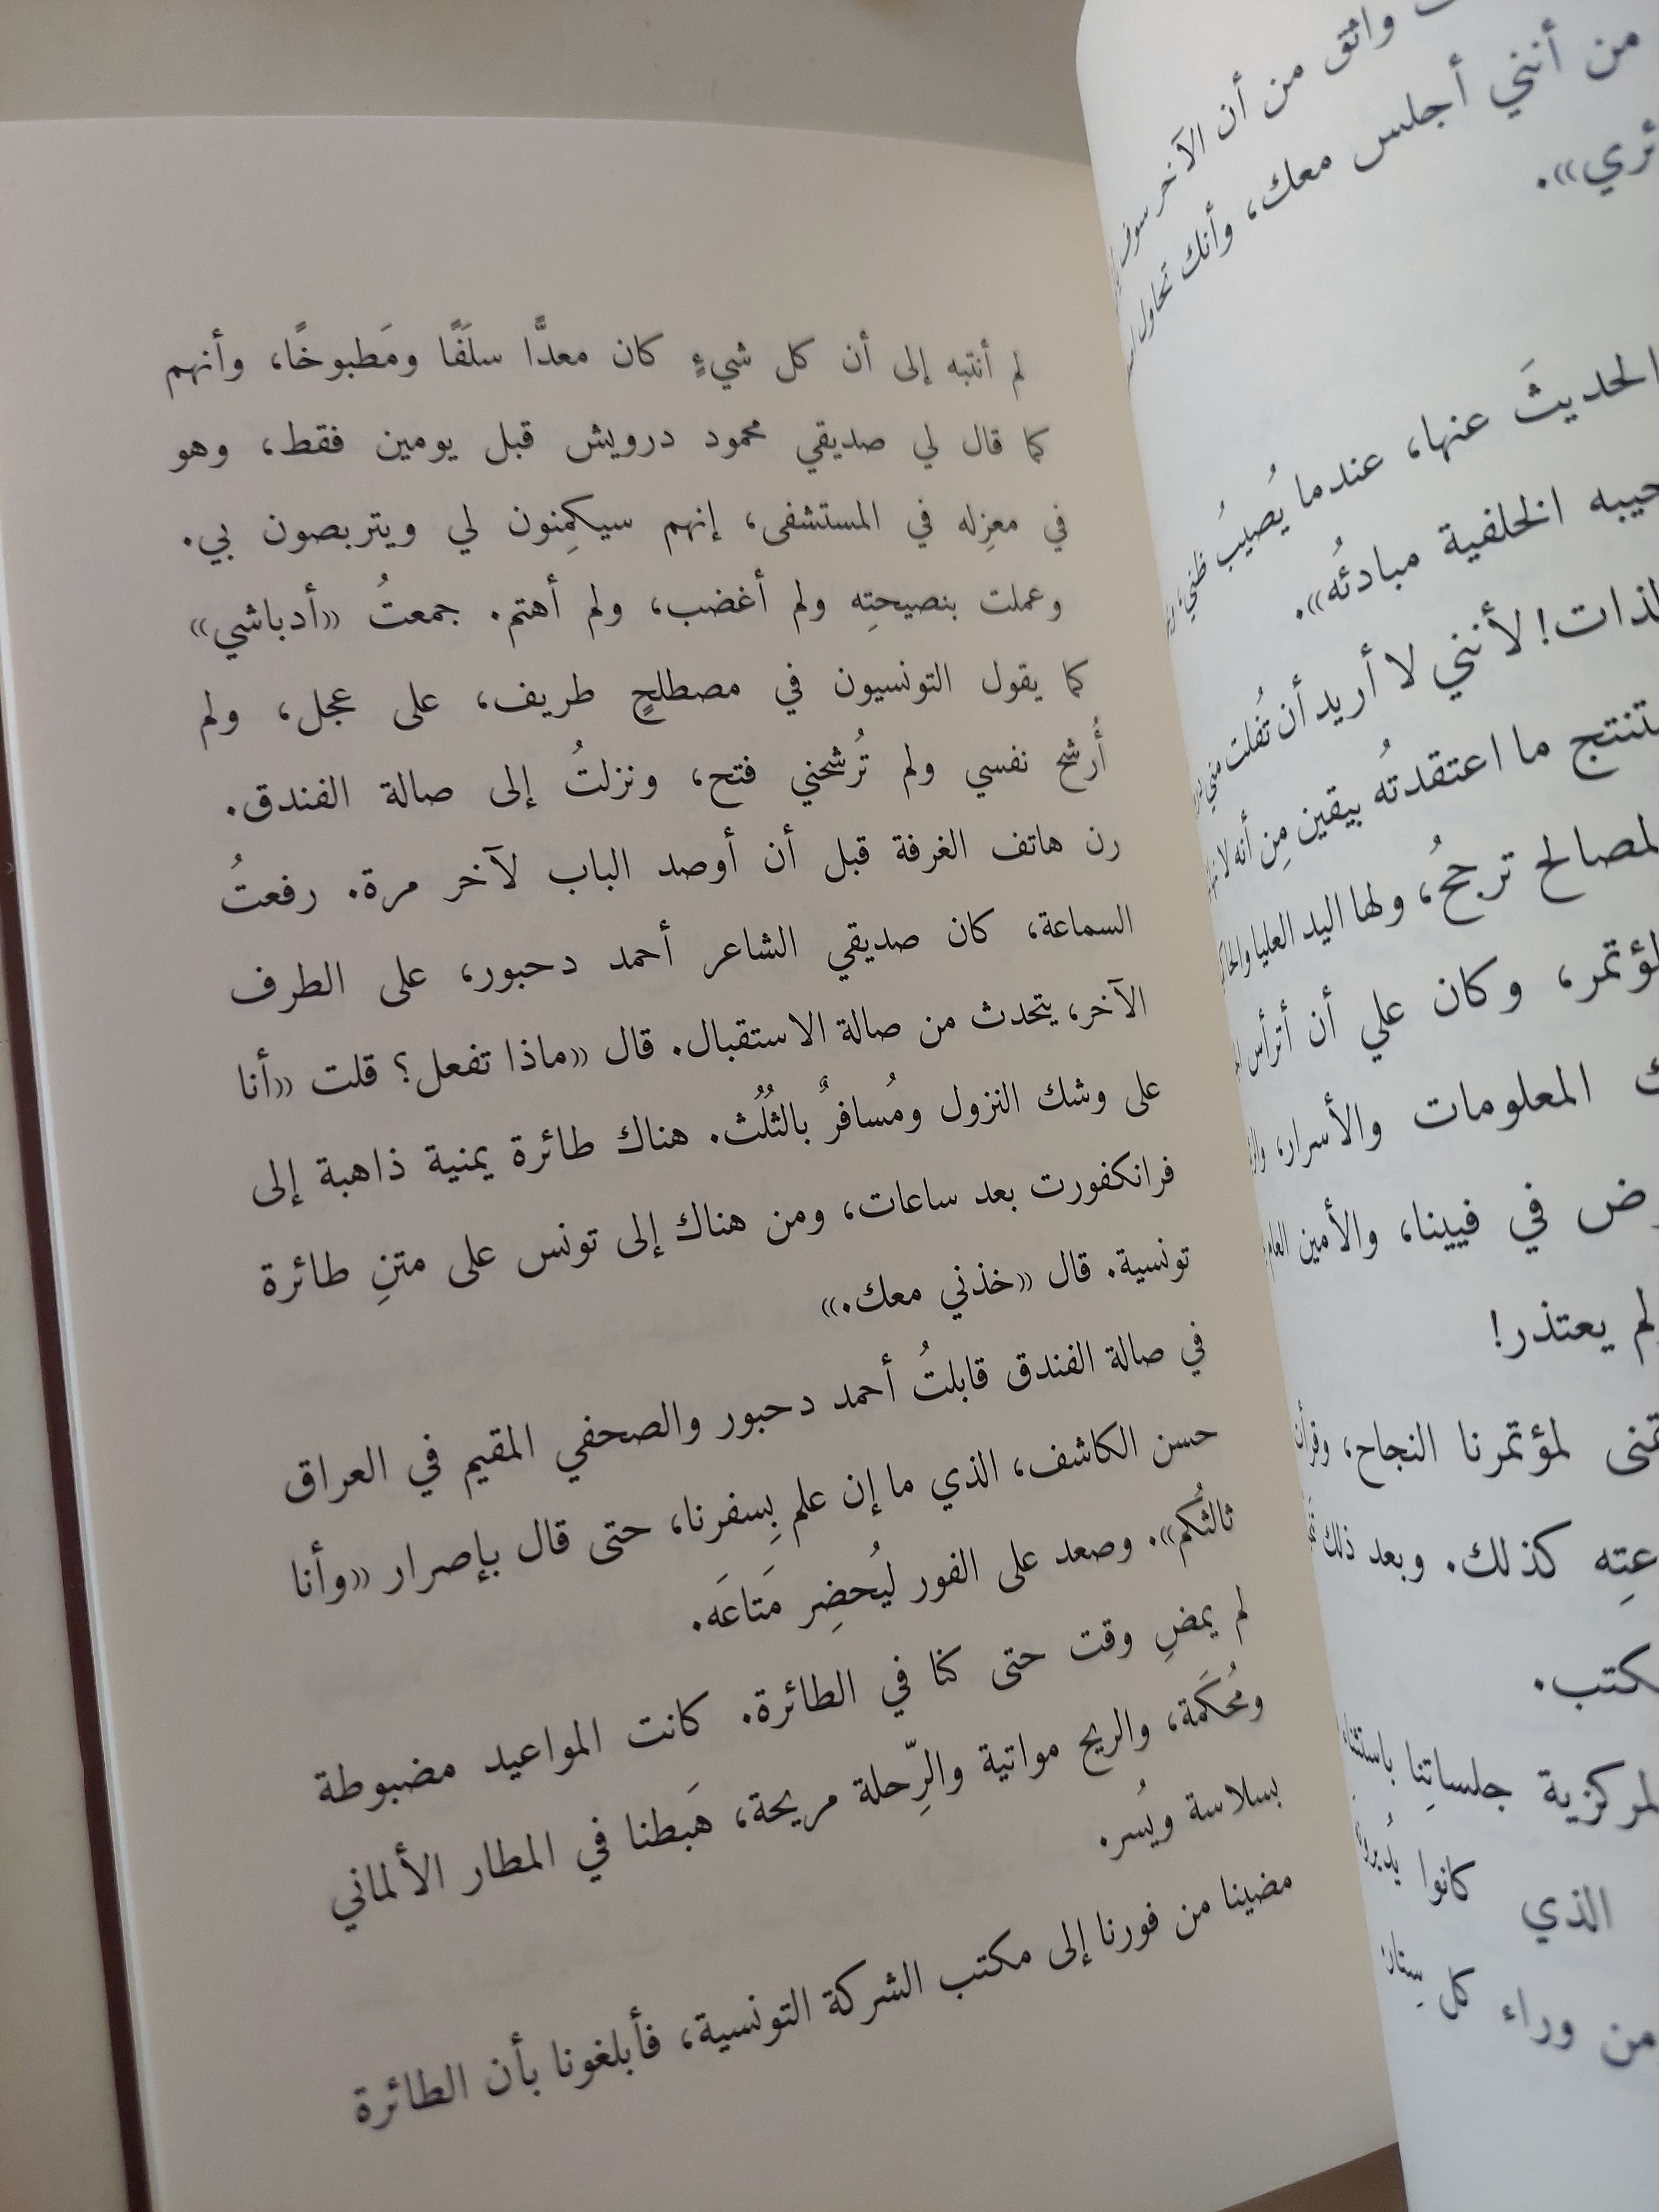 واثق من أن الآخر سوف
من أنني أجلس معك، وأنك تحاول
ئري».
الحديثَ عنها، عندما يُصيبُ ظني؛
جيبه الخلفية مبادئُه».
لذات! لأنني لا أريد أن تُفلت مني
تنتج ما اعتقدتُه بيقين مِن أنه لا
لمصالح ترجحُ، ولها اليد العليا
ؤتمر، وكان علي أن أترأس
ك المعلومات والأسرار،
رض في فيينا، والأمين العام
لم يعتذر!
تمنى لمؤتمرنا النجاح،
عتِه كذلك. وبعد ذلك
كتب.
لمركزية جلساتِنا باستثناء
الذي كانوا يُديرو
من وراء كل
لم أنتبه إلى أن كل شيءٍ كان معدًّا سلَفًا ومَطبوخًا، وأنهم
كما قال لي صديقي محمود درويش قبل يومين فقط، وهو
في معزِله في المستشفى، إنهم سيكمِنون لي ويتربصون بي.
وعملت بنصيحتِه ولم أغضب، ولم أهتم. جمعتُ «أدباشي»
كما يقول التونسيون في مصطلحٍ طريف، على عجل، ولم
أُرشح نفسي ولم تُرشحني فتح، ونزلتُ إلى صالة الفندق.
رن هاتف الغرفة قبل أن أوصد الباب لآخر مرة. رفعتُ
السماعة، كان صديقي الشاعر أحمد دحبور، على الطرف
الآخر، يتحدث من صالة الاستقبال. قال «ماذا تفعل؟ قلت «أنا
على وشك النزول ومُسافرٌ بالثُلُث. هناك طائرة يمنية ذاهبة إلى
فرانكفورت بعد ساعات، ومن هناك إلى تونس على متنِ طائرة
تونسية. قال «خذني معك.»
في صالة الفندق قابلتُ أحمد دحبور والصحفي المقيم في العراق
حسن الكاشف، الذي ما إن علم بِسفرنا، حتى قال بإصرار «وأنا
ثالثُكم». وصعد على الفور ليُحضِر مَتاعَه.
لم يمضِ وقت حتى كنا في الطائرة. كانت المواعيد مضبوطة
ومُحكَمة، والريح مواتية والرِّحلة مريحة، هَبطنا في المطار الألماني
بسلاسة ويُسر.
مضينا من فورنا إلى مكتب الشركة التونسية، فأبلغونا بأن الطائرة